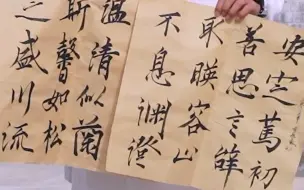 溫清似蘭
斯馨如松
之盛川流
不息渊澄
取暎容止
若思言辭
安定篤初